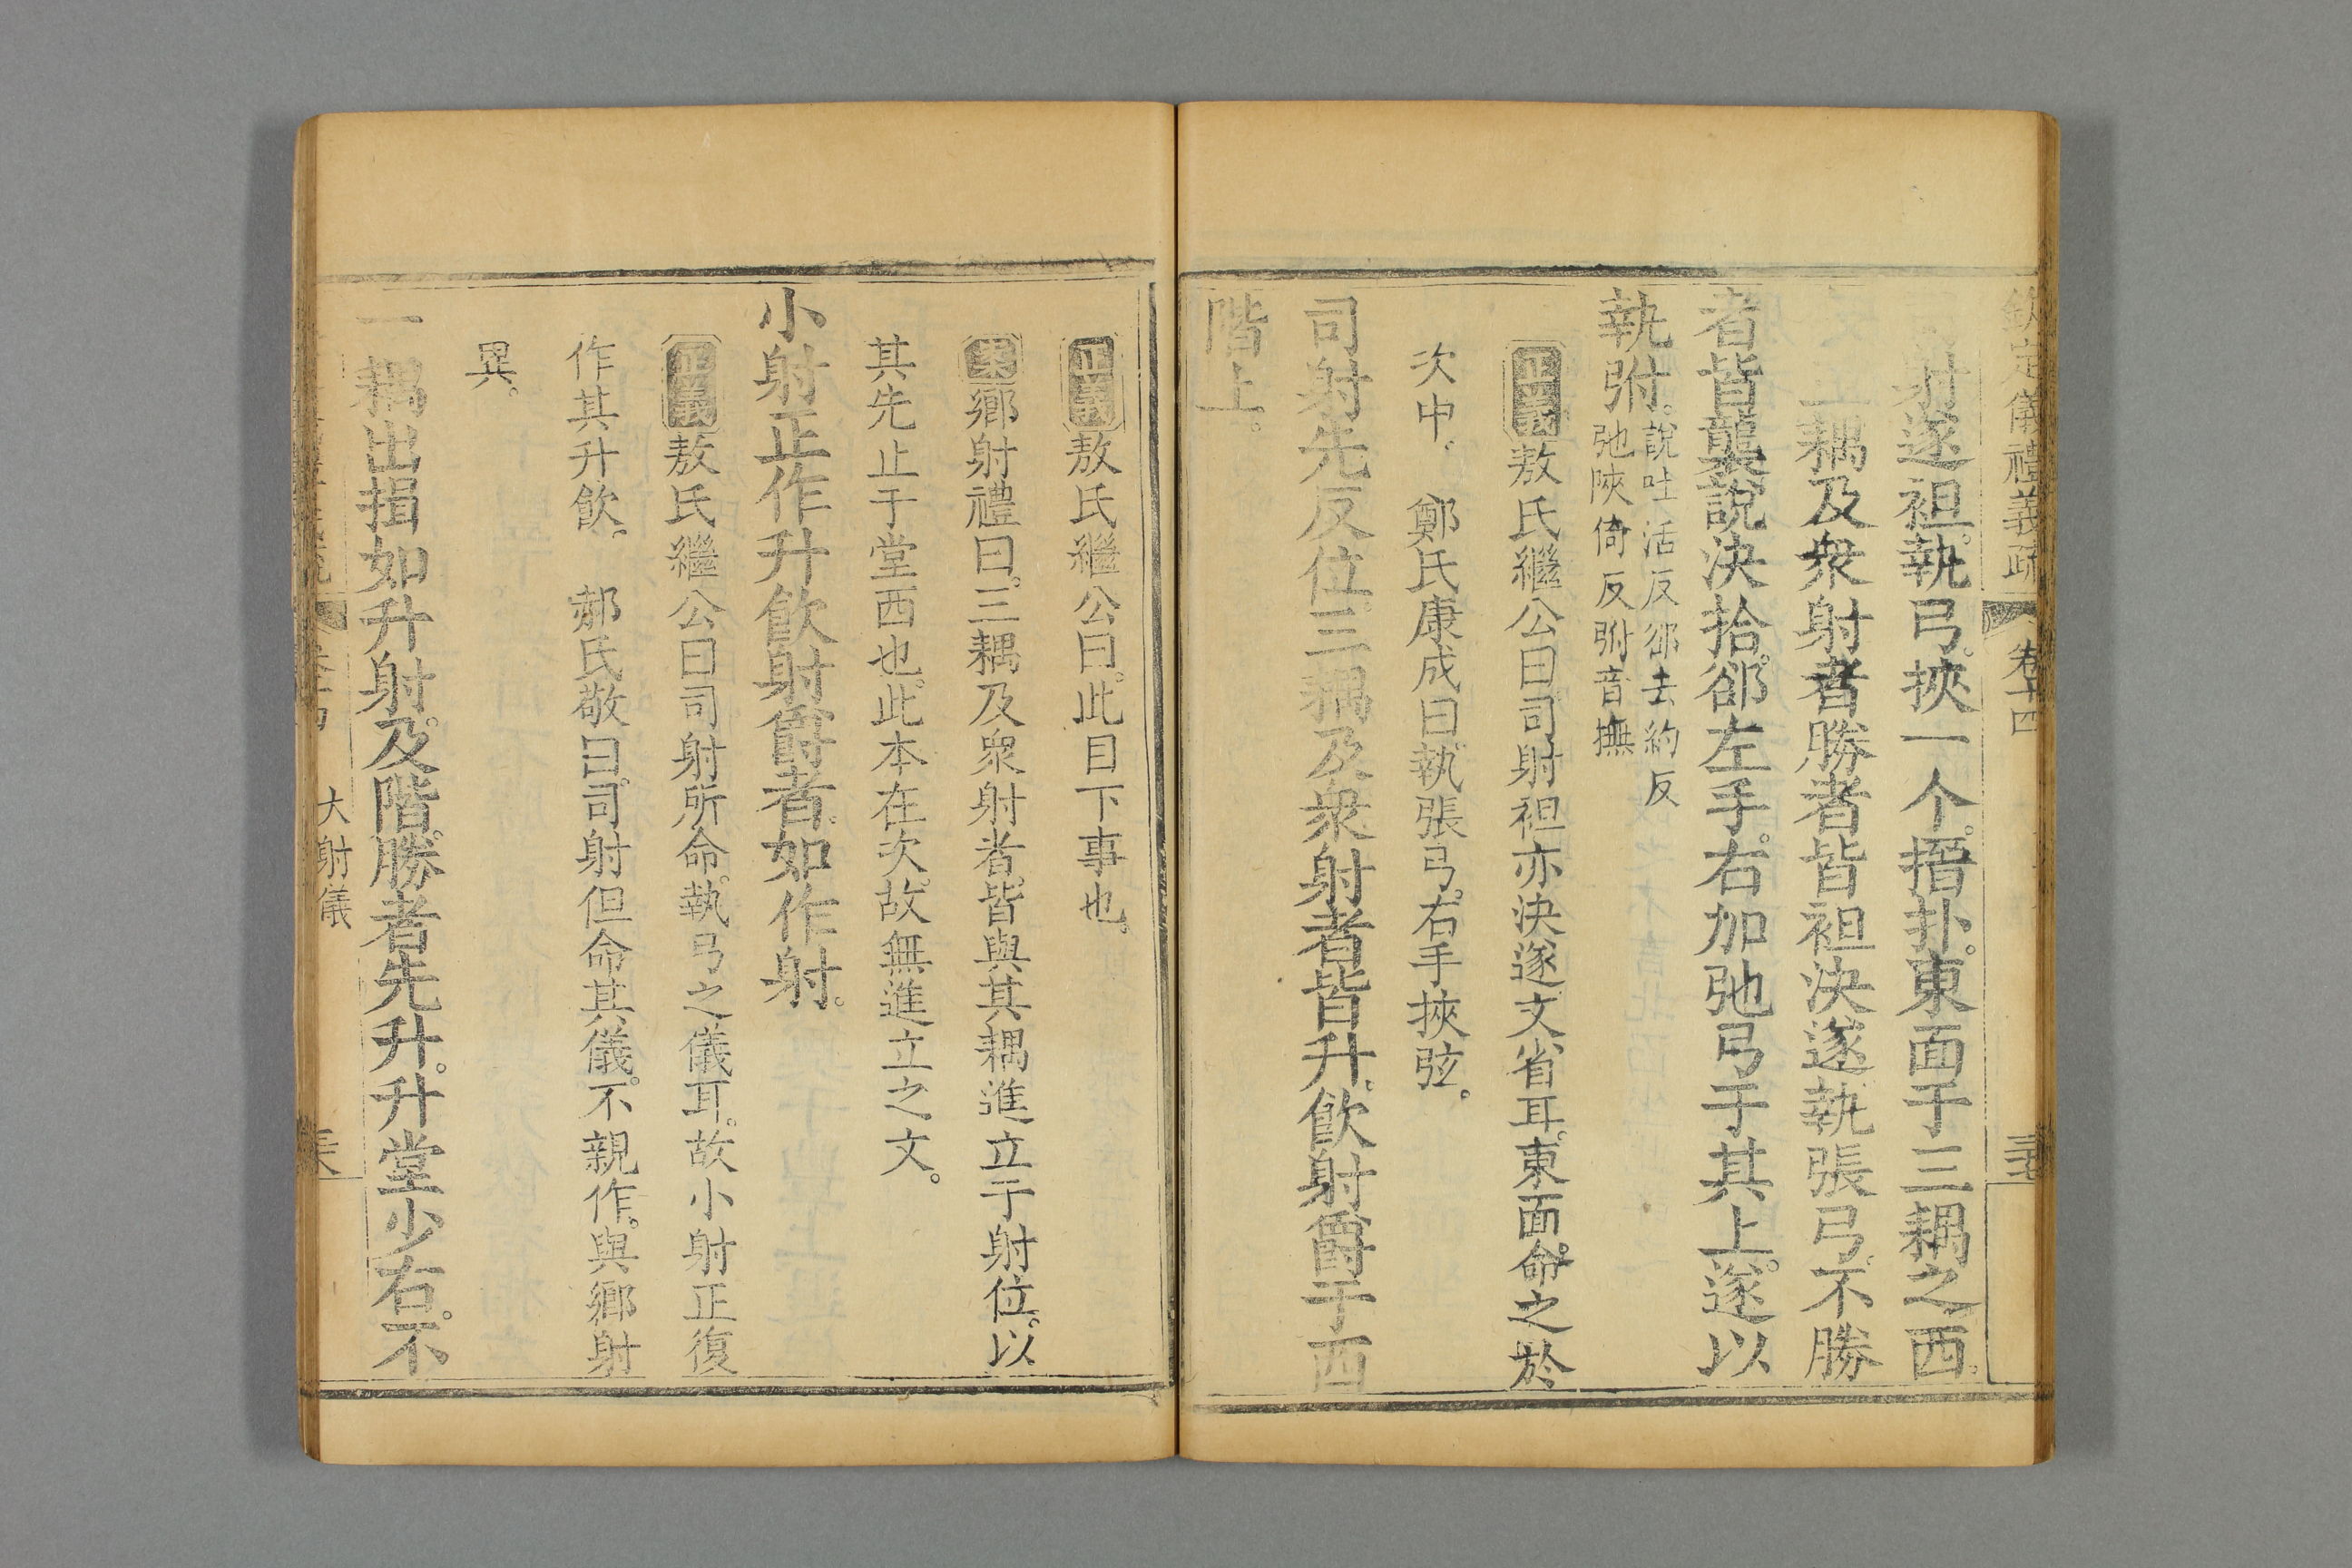 欽定儀禮義疏 卷十四
射遂袒。執弓。挾一个。搢扑。東面于三耦之西。
三耦及衆射者勝者皆袒決遂。執張弓。不勝
者皆襲說決拾。郤左手。右加弛弓于其上。遂以
執弣。
說吐活反郤去約反
弛陝倚反弣音撫
正義敖氏繼公曰司射袒亦決遂文省耳。東面。命之於
次中。 鄭氏康成曰。執張弓。右手挾弦。
司射先反位。三耦及衆射者皆升。飲射爵于西
階上。
正義敖氏繼公曰。此目下事也。
案鄉射禮曰。三耦及衆射者。皆與其耦進立于射位。以
其先止于堂西也。此本在次。故無進立之文。
小射正作升飲射爵者。如作射。
正義敖氏繼公曰司射所命。執弓之儀耳。故小射正復
作其升飲。 郝氏敬曰。司射但命其儀。不親作。與鄉射
異。
一耦出揖如升射。及階。勝者先升。升堂少右。不
大射儀